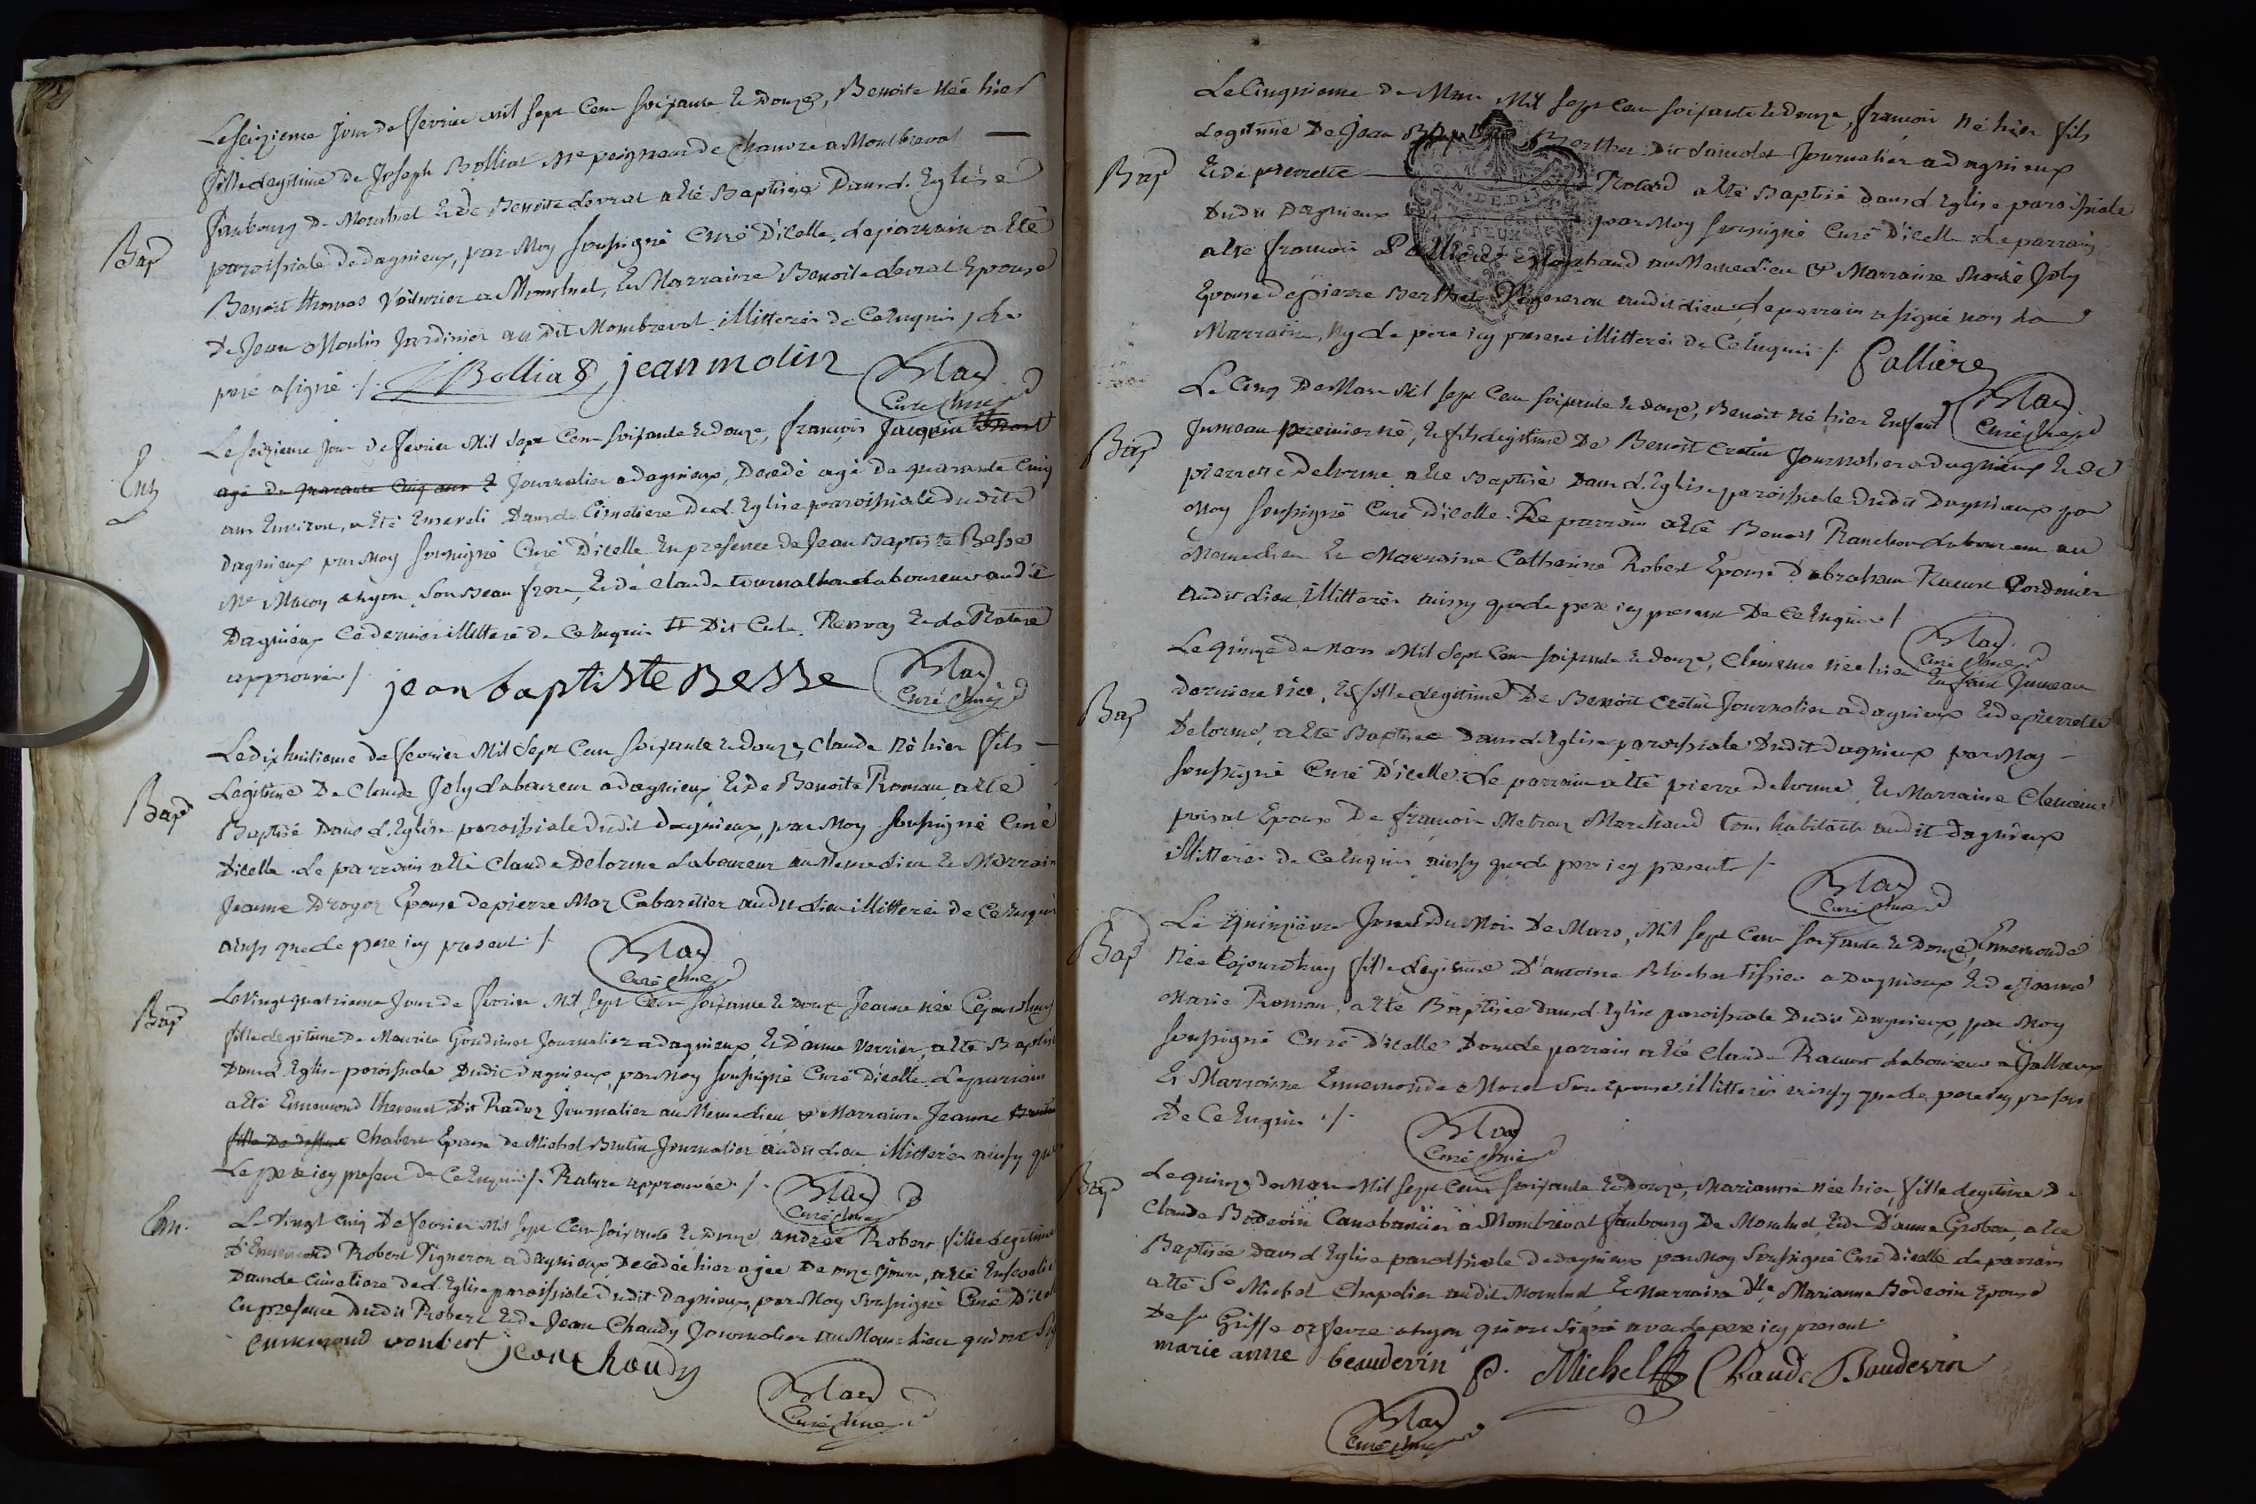 Le seizieme jour de fevrier mil sept cent soixante et douze, Benoite née hier
fille legitime de Joseph Bolliat Me peigneur de chanvre a Montbreval
faubourg de Montluel et de Benoite Levrat a été Baptisée dans l'Eglise
Bap
paroissiale de dagnieux, par Moy soussigné Curé D'icelle, le parrain a été
Benoit thomas Voiturier a Montluel, et Marraine Benoite Levrat Epouse
De Jean Moulin Jardinier au dit Mombreval illitterés de ce enquis, le
pere a signé ./. Bolliat, jean molin Blad
Curé
Le seizieme jour de fevrier Mil sept Cent soixante et douze, françois Jacquin
Ens
agé de quarante cinq ans et Journalier a dagnieux, Decedé agé de quarante cinq
ans Environ, a été Enseveli Dans le Cimetiere de l'Eglise paroissiale du dit
Dagnieux par Moy soussigné Curé D'icelle En presence de Jean Baptiste Besse
Me Maçon a Lyon, son Beau frere, et de Claude tournallon laboureur audit
Dagnieux Ce dernier illitteré de ce enquis Renvoy et la Rature
approuvée /. jean baptiste Besse Blad
Curé
Le dix huitieme de fevrier Mil Sept Cent soixante et douze, Claude né hier fils
Legitime De Claude Joly Laboureur a dagnieux et de Benoite Roman, a été
Bap
Baptisé dans l'Eglise paroissiale dudit dagnieux, par Moy soussigné Curé
D'icelle. Le parrain a été Claude Delorme Laboureur au Meme lieu et Marraine
Jeanne Drogoz Epouse de pierre Moz Cabaretier audit Lieu illitterés de ce enquis
ainsy que le pere icy present ./. Blad
Curé
Bap
Le vingt quatrieme Jour de fevrier Mil sept Cent soixante et douze Jeanne née Cejourd'huy
fille legitime De Maurice Goudinot Journalier a dagnieux, et D'anne Verrier, a été Baptisée
Dans l'Eglise paroissiale Dudit dagnieux, par Moy soussigné Curé D'icelle. Le parrain
a été Ennemond thevenet Dit Raduz Journalier au Meme lieu & Marraine Jeanne
fille De deffunt Chabert Epouse de Michel Brutin Journalier audit Lieu illitterés ainsy que
Le pere icy present de ce enquis /. Rature approuvée ./. Blad
Curé
Ens.
Le vingt cinq De fevrier Mil sept Cent soixante et douze andrée Robert fille legitime
d'Ennemond Robert Vigneron a dagnieux Decedée hier agée De onze Jours, a été Ensevelie
Dans le cimetiere de l'Eglise paroissiale dudit Dagnieux, par Moy soussigné Curé D'icelle
En presence Dudit Robert et de Jean Chaudy Journalier au Meme lieu qui ont
ennemond roubert jean Chaudy
Blad
Curé
Le Cinquieme de Mars Mil sept cent soixante et douze, françois né hier fils
Legitime De Jean Baptiste Berthet Dit Journalier a dagnieux
Bap
Et de pierrette Rolard a été Baptisé dans l'Eglise paroissiale
dudit Dagnieux par Moy soussigné Curé D'icelle. Le parrain
a été françois Pallière Marchand au Meme Lieu & Marraine Marie Joly
Epouse de pierre Berthet Vigneron audit Lieu, Le parrain a signé non la
Marraine, Ny le pere icy present illitterés de Ce enquis /. Pallière
Blad
Curé
Le Cinq De Mars Mil sept Cent soixante et douze, Benoit né hier Enfant
Bap
Jumeau premier né, et fils legitime De Benoit Cretin Journalier a dagnieux et de
pierrette Delorme a été Baptisé Dans l'Eglise paroissiale dudit Dagnieux par
Moy soussigné Curé D'icelle. Le parrain a été Benoit Ranchon Laboureur au
Meme lieu et Marraine Catherine Robert Epouse d'abraham Racurt Cordonier
audit Lieu, illitterés ainsy que le pere icy present De Ce Enquis /.
Blad
Curé
Le quinze de mars Mil Sept Cent soixante et douze, née hier Enfant Jumeau
Bap
derniere née, et fille legitime De Benoit Cretin Journalier a dagnieux et de pierrette
Delorme, a été Baptisée Dans l'Eglise paroissiale Dudit dagnieux par Moy
soussigné Curé D'icelle. Le parrain a été pierre Delorme, et Marraine
Epouse De françois Metraz Marchand tous habitants audit dagnieux
illitterés de Ce enquis ainsy que le pere icy present /.
Blad
Curé
Bap
Le quinzieme Jour Du Mois De Mars, Mil sept Cent soixante et Douze, Ennemonde
Née Cejourd'huy fille Legitime D'antoine Blachet tissier a Dagnieux et de Jeanne
Marie Roman, a été Baptisée dans l'Eglise paroissiale Dudit Dagnieux, par Moy
soussigné Curé D'icelle Dont le parrain a été Claude Racurt Laboureur a
Et Marraine Ennemonde Morel Son epouse, illitterés ainsy que le pere icy present
De Ce Enquis ./.
Blad
Curé
Bap
Le quinze de Mars Mil sept Cent soixante et douze, Marianne née hier, fille legitime De
Claude Bodevin Canabassier a Mombreval faubourg De Montluel et de D'anne Grobon, a été
Baptisée dans l'Eglise paroissiale de dagnieux par Moy soussigné Curé D'icelle le parrain
a été Sr Michel Chapelier audit Montluel Et Marraine Dlle Marianne Bodevin Epouse
De Sr Griffe orfevre a Lyon qui ont signé avec le pere icy present
marie anne beaudevin P. Michel Claude Baudevin
Blad
Curé